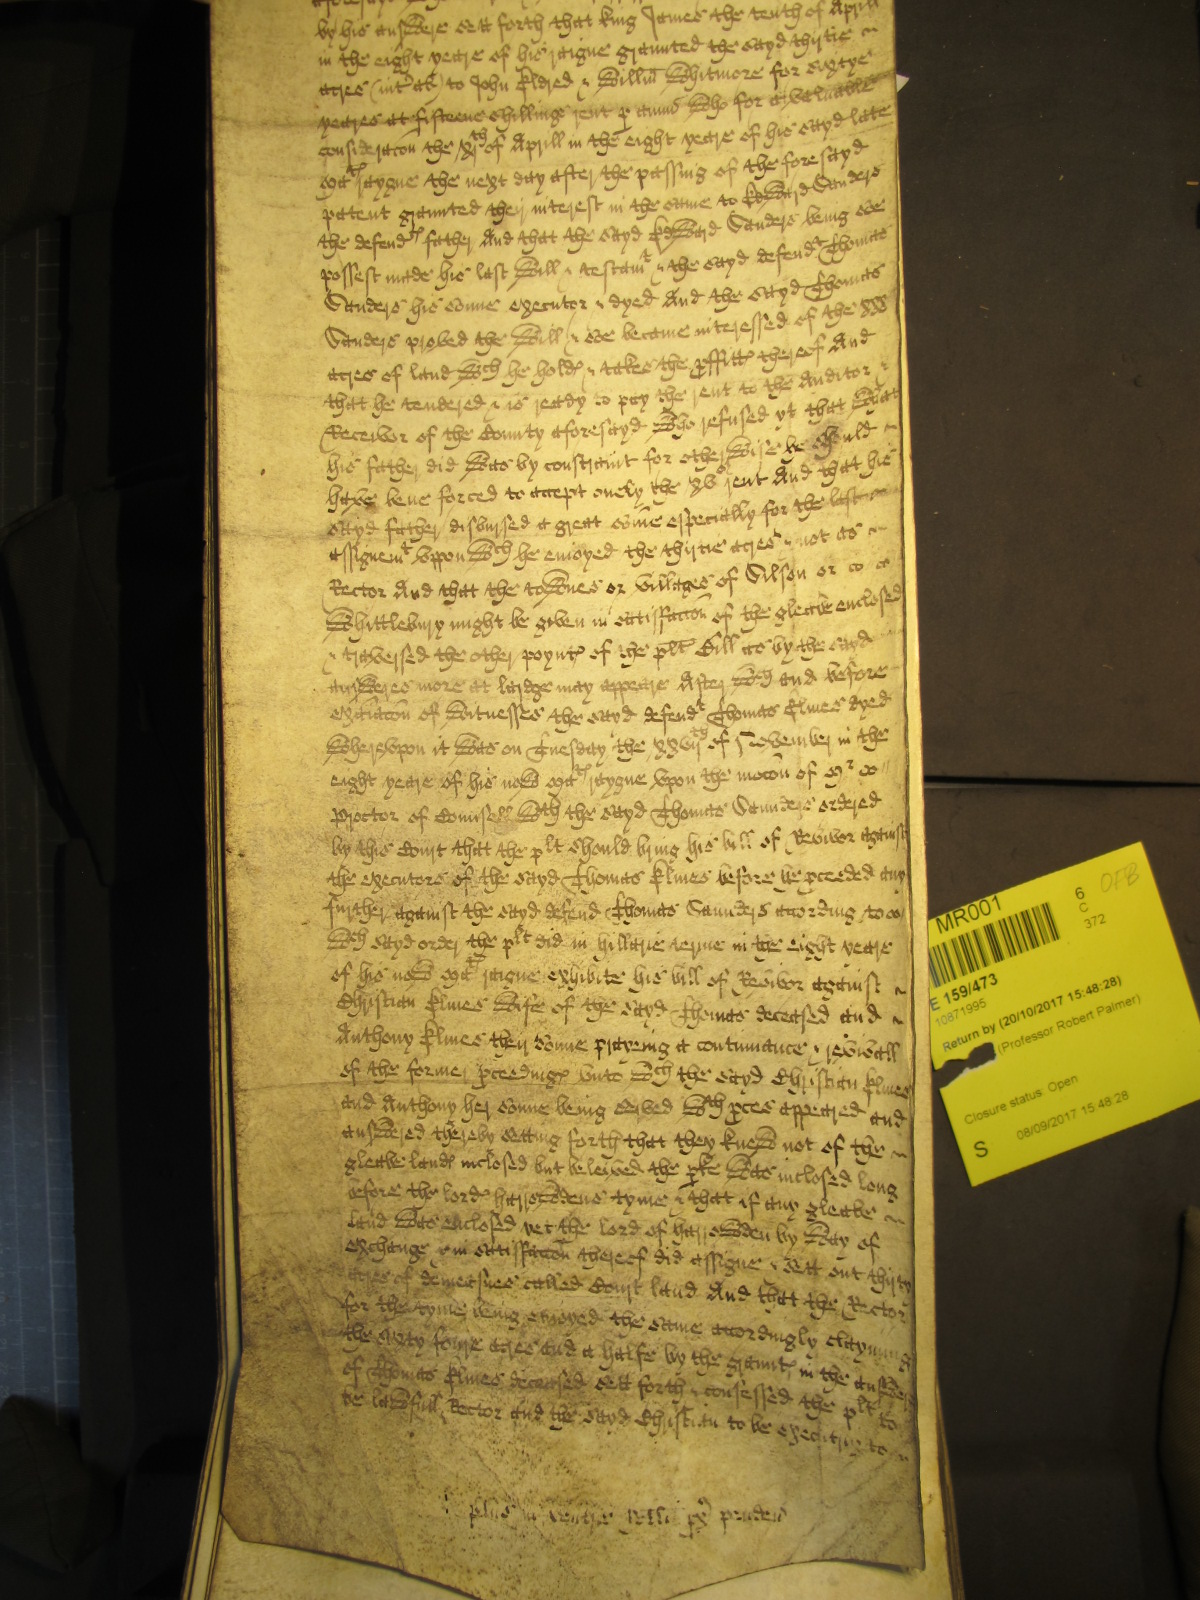 by his answere sett forth that king James the tenth of Aprill
in the eight yeare of his raigne graunted the sayd thirtie
acres (int al) to John Eldred & Willm Whitmore for sixtye
yeares at fifteene shillings rent p annu who for a valuable
consideracon the xjth of Aprill in the eight yeare of his sayd late
Mats raygne the next day after the passing of the foresayd
patent graunted their interest in the same to Edward Sanders
the defendts father And that the sayd Edward Sanders being soe
possest made his last will & testamt & the sayd defendt Thomas
Sanders his sonne executor & dyed And the sayd Thomas
Sanders proved the will & soe became interessed of the xxx
acres of land wch he holds & takes the proffitts thereof And
that he tendered & is ready to pay the rent to the Auditor &
Receivor of the County aforesayd who refused yt that what
his father did was by constraint for otherwise he should
have bene forced to accept onely the xvs rent And that his
sayd father disbursed a great some especially for the last
assignemt uppon wch he enioyed the thirtie acres & not as
Rector And that the townes or villages of Silson or
Whittlebury might be given in satisfaccon of the gleabe enclosed
& traversed the other poynts of the plts Bill as by the sayd
answeres more at lardge may appeare After wch and before
exaiacon of witnesses the sayd defendt Thomas Elmes dyed
Whereupon it was on Tuesday the xxvijth of November in the
eight yeare of his now Mats raygne upon the mocon of Mr
Proctor of Counsell wth the sayd Thomas Saunders ordered
by this Court that the plt should bring his bill of Revivor against
the executors of the sayd Thomas Elmes before he pceeded any
further against the sayd defend Thomas Saunders according to
wch sayd order the plt did in hillarie terme in the eight yeare
of his now Mats raigne exhibite his bill of Revivor against
Christian Elmes wife of the sayd Thomas deceased and
Anthony Elmes their sonne prayeing a contiuance & revivall
of the former pceedings unto wch the sayd Christian Elmes
and Anthony her sonne being served wth pces appeared and
answered thereby setting forth that they knew not of the
gleabe lands inclosed but beleived the pke was inclosed long
before the lord harrowdens tyme & that if any gleabe
land was enclosed yet the lord of harrowden by way of
exchange & in satisfaccon thereof did assigne & sett out thirty
acres of demeasnes called Court land And that the Rector
for the tyme being enioyed the same accordingly
the sixty foure acres and a halfe by the graunts in the answere
of Thomas Elmes deceased sett forth & confessed the plt to
be lawfull Rector and the sayd Christian to be executrix to
plus in
MR001
6
C
372
OFB
E 159/473
10871995
Return by (20/10/2017 15:48:28)
(Professor Robert Palmer)
Closure status: Open
S 08/09/2017 15:48:28